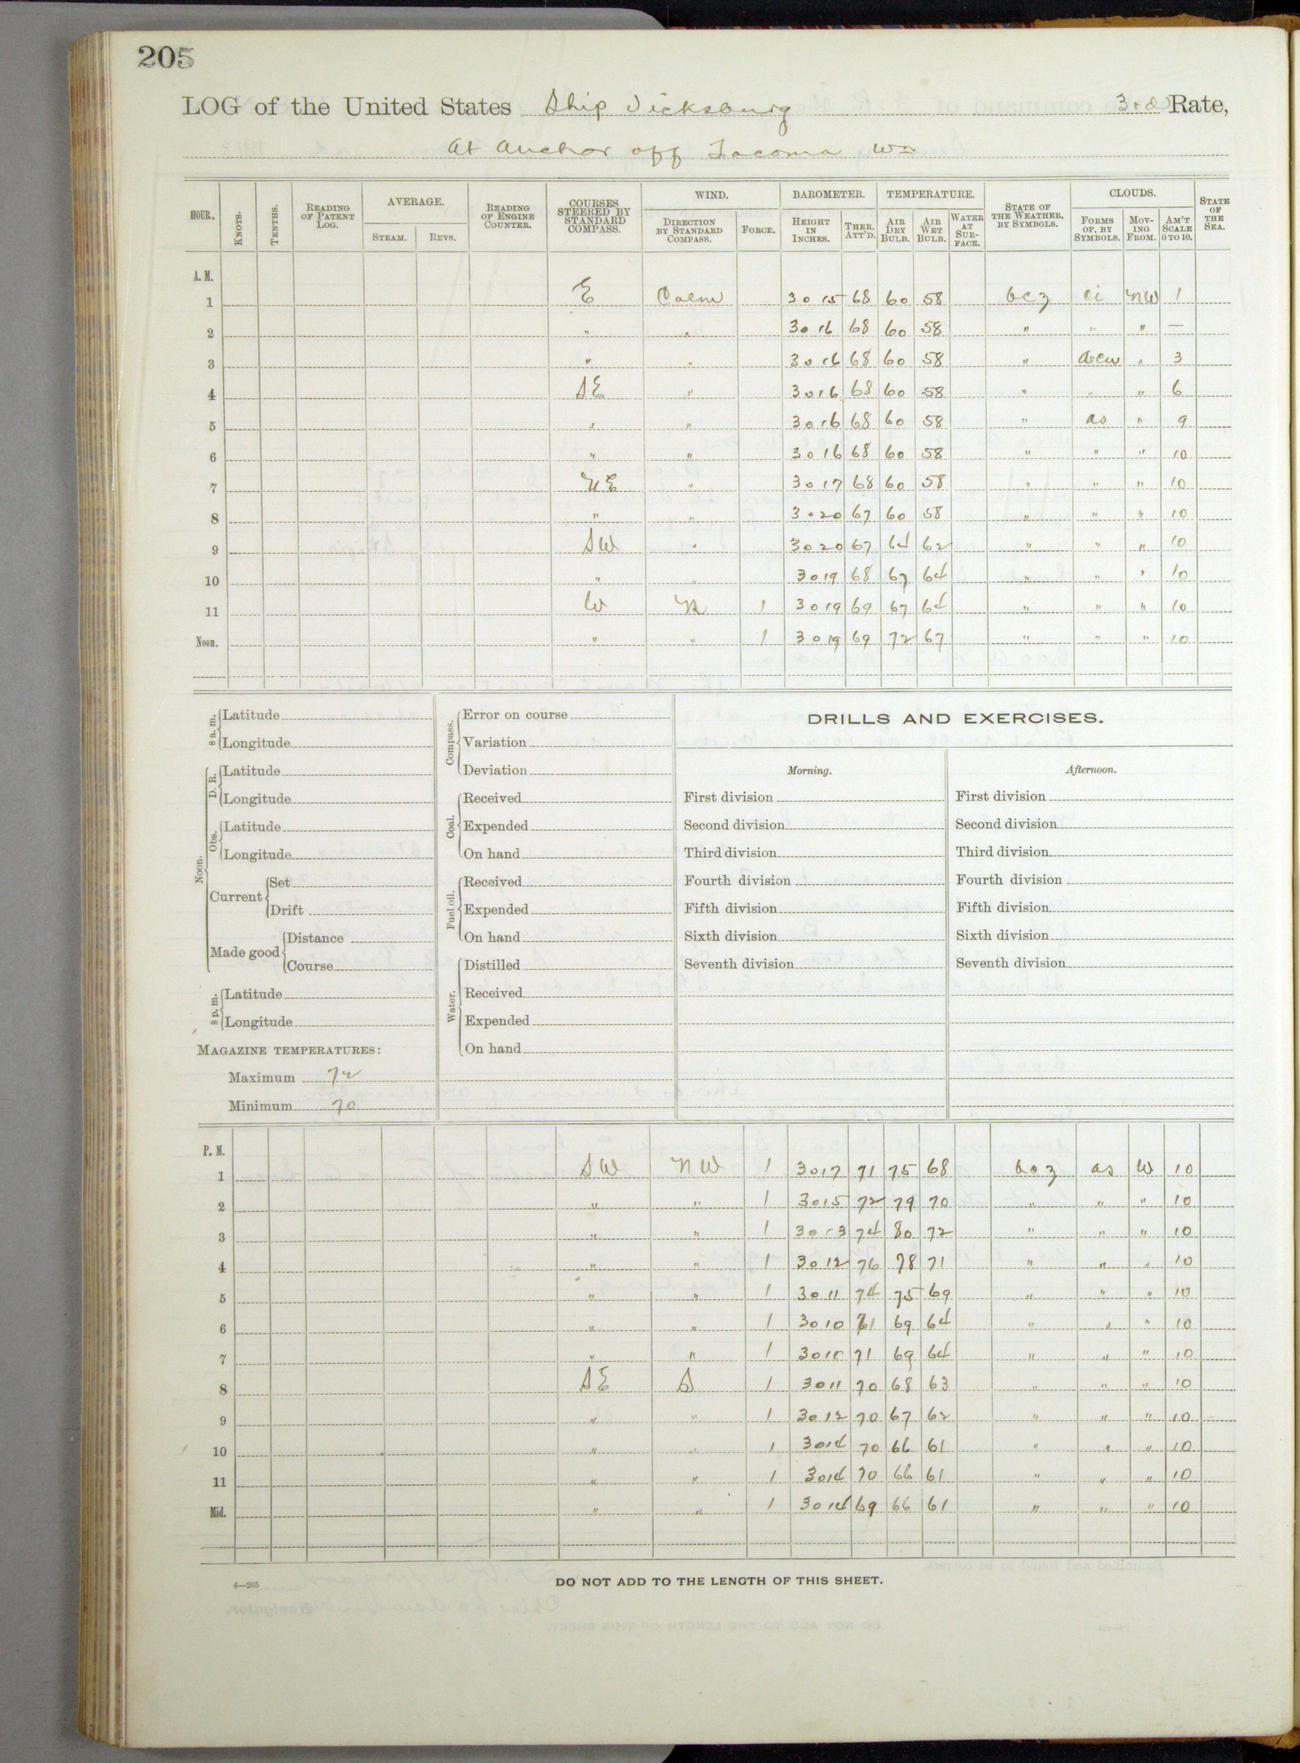 205
LOG of the United States Ship Vicksburg 3rd Rate,
At Anchor off Tacoma Wn
HOUR. KNOTS. TENTHS. READING OF PATENT LOG. AVERAGE. STEAM. REVS. READING OF ENGINE COUNTER. COURSES STEERED BY STANDARD COMPASS. WIND. DIRECTION BY STANDARD COMPASS. FORCE. BAROMETER. HEIGHT IN INCHES. THER. ATT'D. TEMPERATURE. AIR DRY BULB. AIR WET BULB. WATER AT SURFACE. STATE OF THE WEATHER, BY SYMBOLS. CLOUDS. FORMS OF, BY SYMBOLS. MOVING FROM. AM'T SCALE 0 TO 10. STATE OF THE SEA.
A. M.
1 E Calm 30 15 68 60 58 bcz ci NW 1
2 " " 30 16 68 60 58 " " " —
3 " " 30 16 68 60 58 " acu " 3
4 SE " 30 16 68 60 58 " " " 6
5 " " 30 16 68 60 58 " as " 9
6 " " 30 16 68 60 58 " " " 10
7 NE " 30 17 68 60 58 " " " 10
8 " " 30 20 67 60 58 " " " 10
9 SW " 30 20 67 64 62 " " " 10
10 " " 30 19 68 67 64 " " " 10
11 W N 1 30 19 69 67 64 " " " 10
Noon. " " 1 30 19 69 72 67 " " " 10
DRILLS AND EXERCISES.
Morning. Afternoon.
8 a. m. Latitude
Longitude
Noon.
D. R. Latitude
Longitude
Obs. Latitude
Longitude
Current Set
Drift
Made good Distance
Course
8 p. m. Latitude
Longitude
MAGAZINE TEMPERATURES:
Maximum 72
Minimum 70
Compass. Error on course
Variation
Deviation
Coal. Received
Expended
On hand
Fuel oil. Received
Expended
On hand
Water. Distilled
Received
Expended
On hand
First division First division
Second division Second division
Third division Third division
Fourth division Fourth division
Fifth division Fifth division
Sixth division Sixth division
Seventh division Seventh division
P. M.
1 SW NW 1 30 17 71 75 68 bcz as W 10
2 " " 1 30 15 72 79 70 " " " 10
3 " " 1 30 13 74 80 72 " " " 10
4 " " 1 30 12 76 78 71 " " " 10
5 " " 1 30 11 74 75 69 " " " 10
6 " " 1 30 10 71 69 64 " " " 10
7 " " 1 30 10 71 69 64 " " " 10
8 SE S 1 30 11 70 68 63 " " " 10
9 " " 1 30 12 70 67 62 " " " 10
10 " " 1 30 14 70 66 61 " " " 10
11 " " 1 30 14 70 66 61 " " " 10
Mid. " " 1 30 14 69 66 61 " " " 10
4—265
DO NOT ADD TO THE LENGTH OF THIS SHEET.